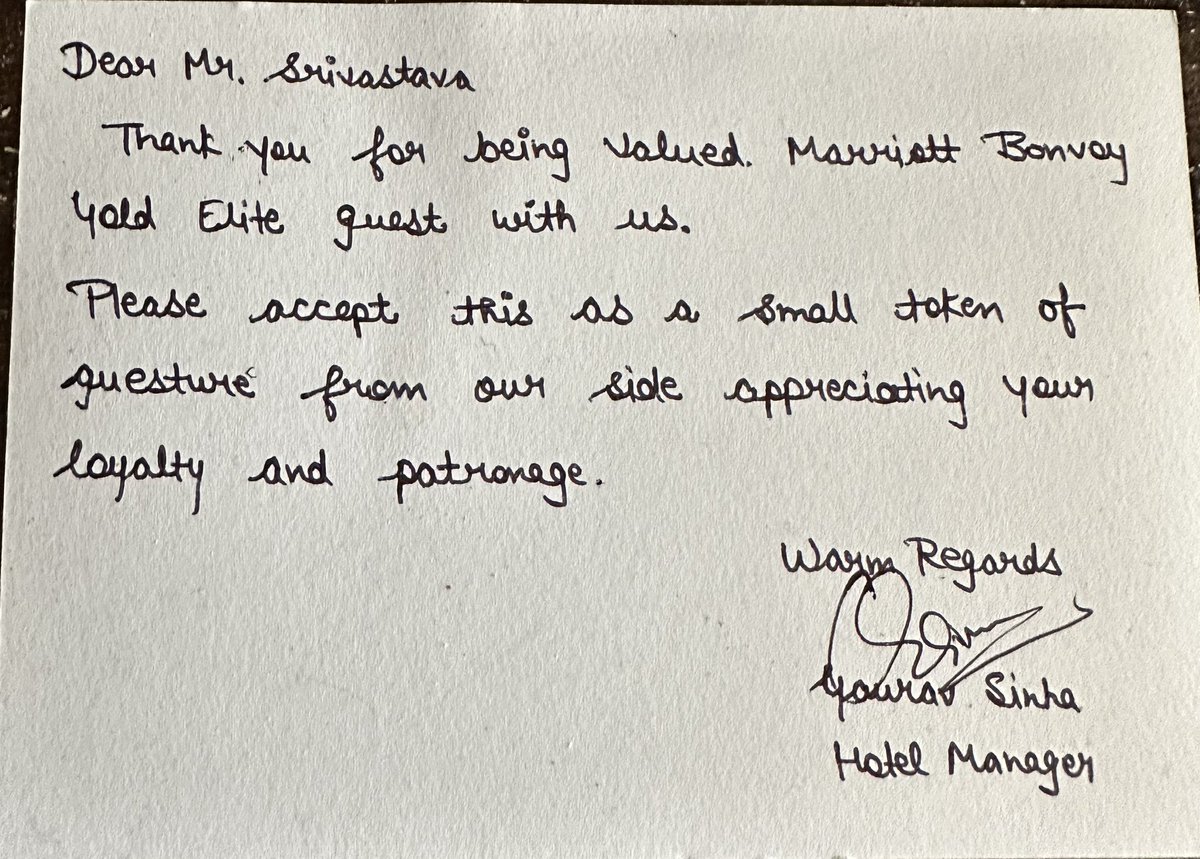 Dear Mr. Srivastava
Thank you for being valued. Marriott Bonvoy
Gold Elite guest with us.
Please accept this as a small token of
guesture from our side appreciating your
loyalty and patronage.
Warm Regards
Gourav Sinha
Hotel Manager